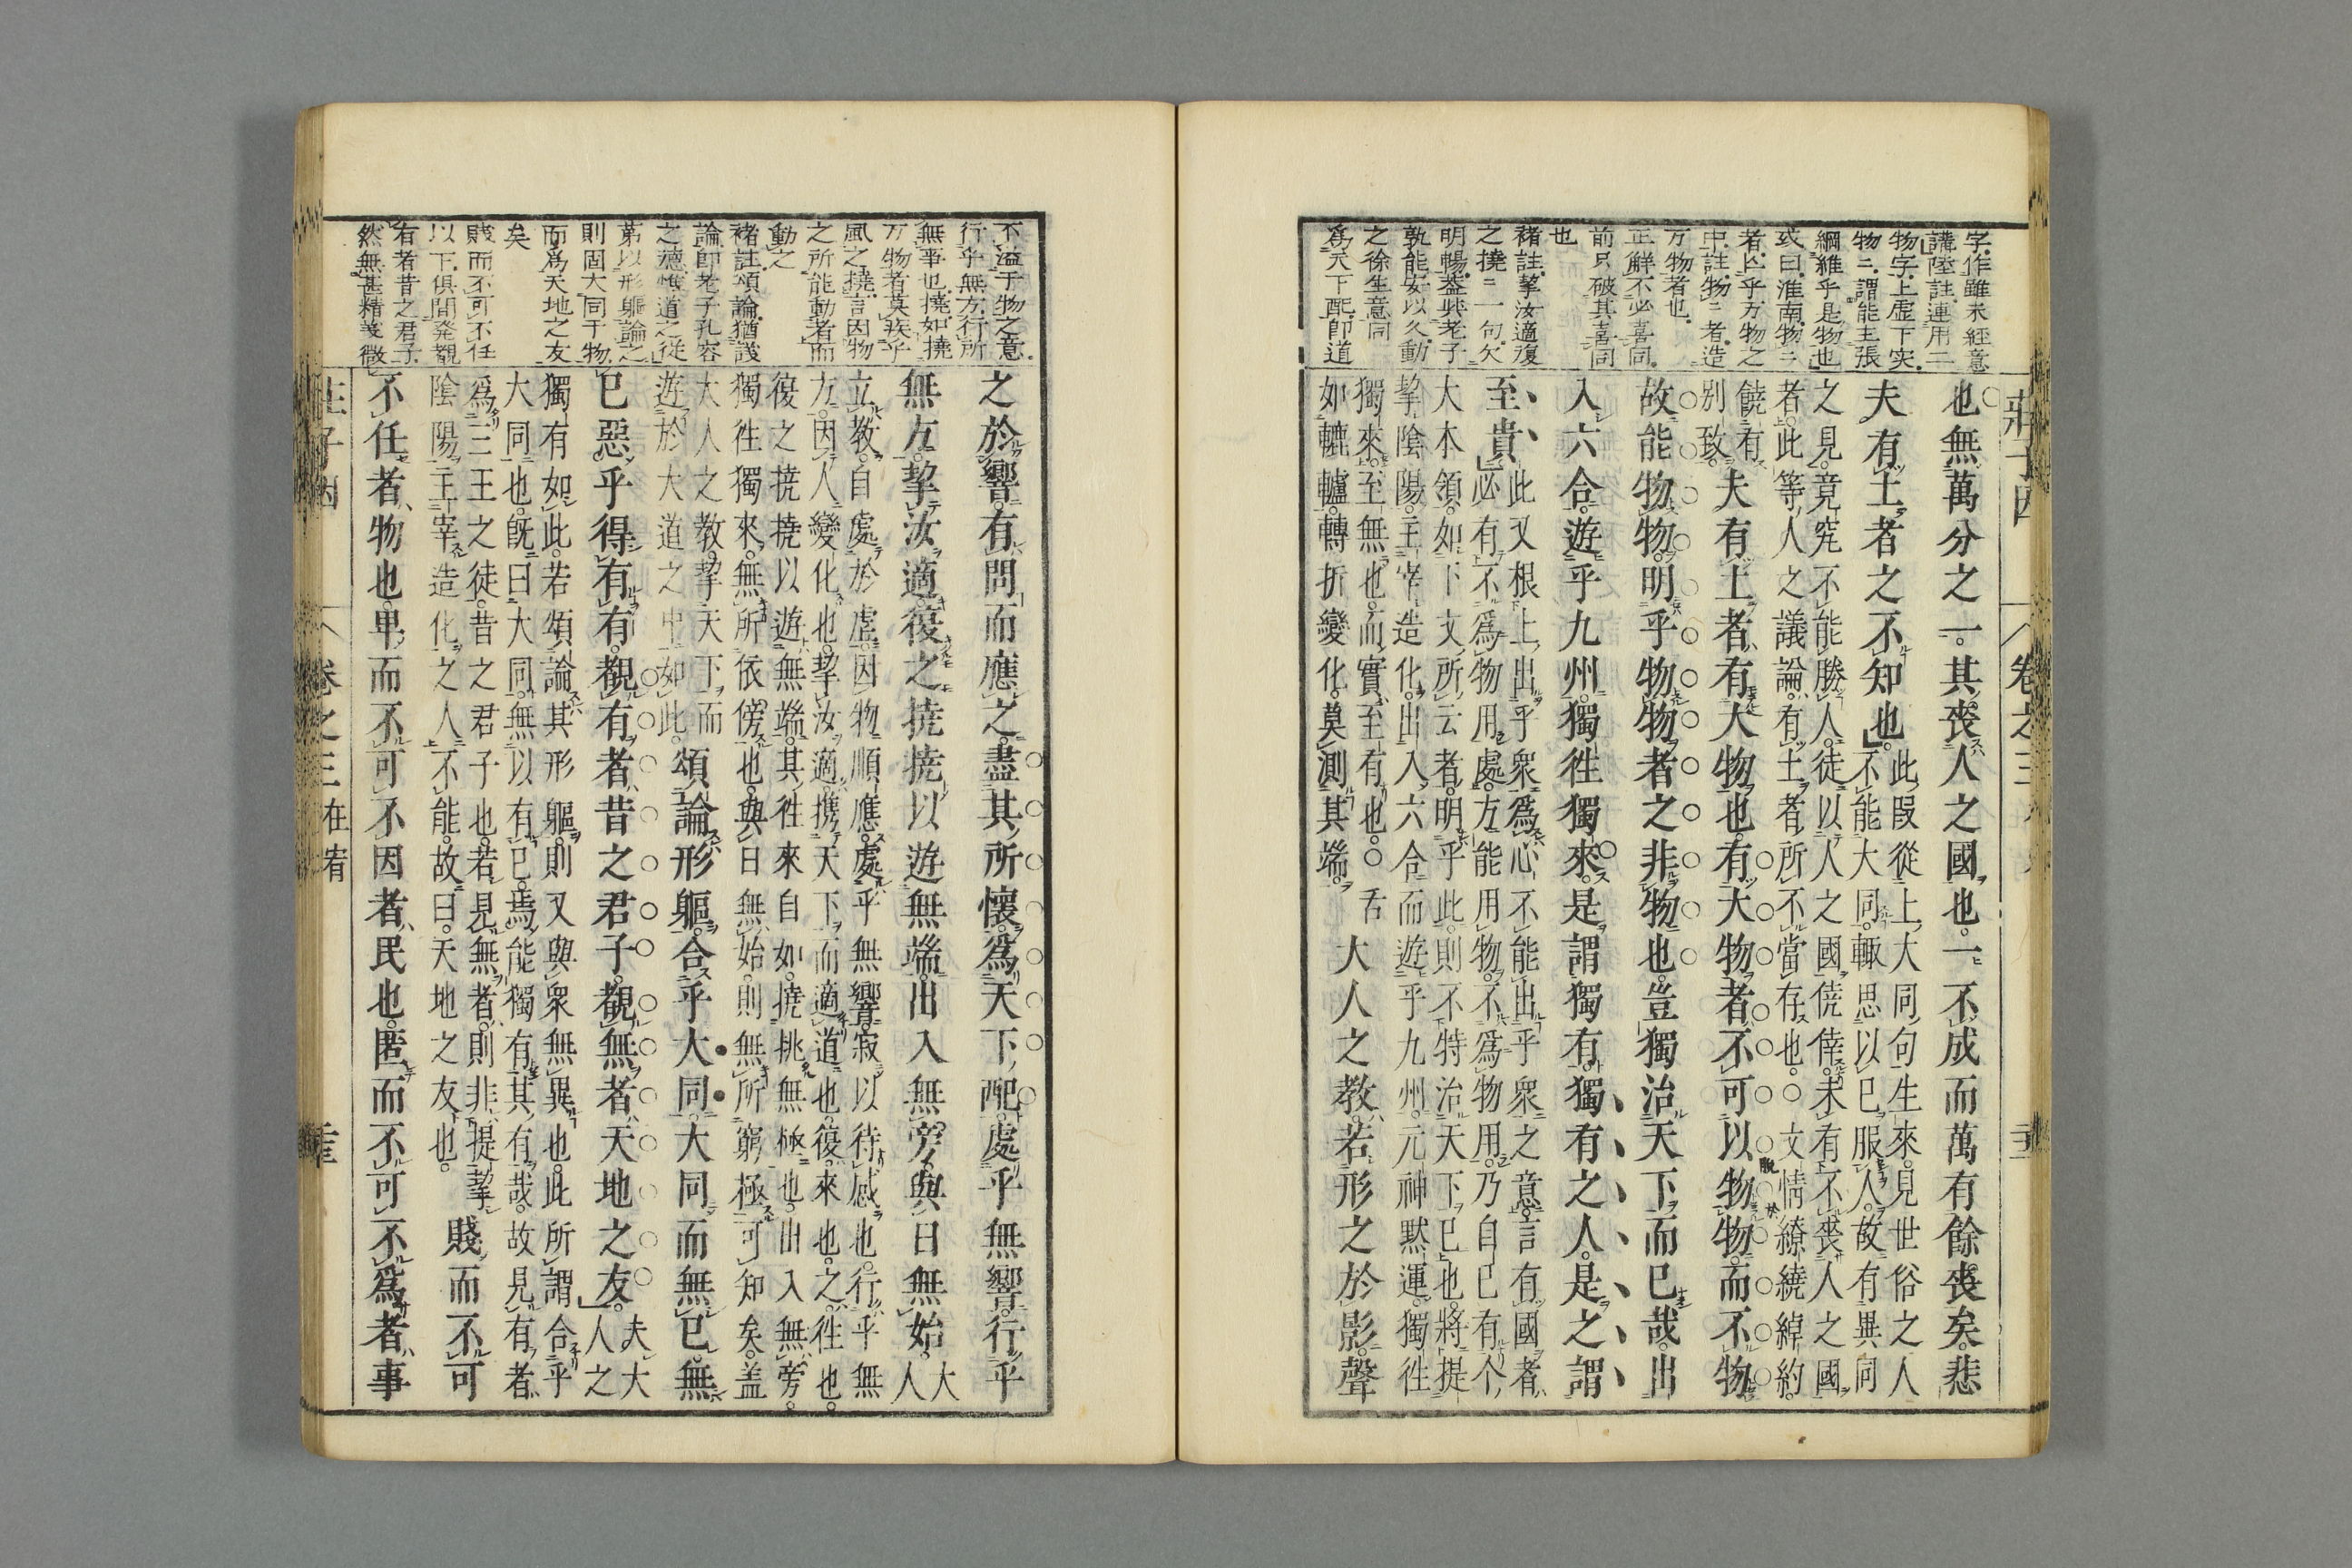 字作雖未經意
講陸註連用二
物字上虛下实
物二謂能主張
綱維乎是物也
或曰淮南物二
者亾乎万物之
中註物二者造
万物者也
正解不必喜同
前只破其喜同
也
褚註挈汝適復
之撓二一句欠
明暢蓋與老子
孰能安以久動
之徐生意同
為天下配即道
也無萬分之一其喪人之國也一不成而萬有餘喪矣悲
夫有土者之不知也
此段從上大同句生來見世俗之人
不能大同輙思以已服人故有異同
之見竟究不能勝人徒以人之國僥倖未有不喪人之國
者此等人之議論有土者所不當存也○文情繚繞綽約
饒有
別致
夫有土者有大物也有大物者不可以物物而不物
故能物物明乎物物者之非物也豈獨治天下而已哉出
入六合遊乎九州獨徃獨來是謂獨有獨有之人是之謂
至貴
此又根上出乎衆為心不能出乎衆之意言有國者
必有不為物用處方能用物不為物用乃自已有个
大本領如下文所云者明乎此則不特治天下已也將提
挈陰陽主宰造化出入六合而遊乎九州元神黙運獨徃
獨來至無也而實至有也○舌
如轆轤轉折變化莫測其端
大人之教若形之於影聲
莊子因
卷之三
不溢于物之意
行乎無方行所
無事也撓如撓
万物者莫疾乎
風之撓言因物
之所能動者而
動之
褚註頌論猶談
論即老子孔容
之德惟道之従
第以形軀論之
則固大同于物
而為天地之友
矣
賎而不可不任
以下俱間発觀
有者昔之君子
然無甚精義徴
之於響有問而應之盡其所懷為天下配處乎無響行乎
無方挈汝適復之撓撓以遊無端出入無旁與日無始
大
人
立教自處於虛因物順應處乎無響寂以待感也行乎無
方因人變化也挈汝適携天下而適道也復來也之徃也
復之撓撓以遊無端其徃來自如撓挑無極也出入無旁
獨徃獨來無所依傍也與日無始則無所窮極可知矣盖
大人之教挈天下而
遊於大道之中如此
頌論形軀合乎大同大同而無已無
已惡乎得有有覩有者昔之君子覩無者天地之友
夫大
人之
獨有如此若頌論其形軀則又與衆無異也此所謂合乎
大同也旣曰大同無以有已焉能獨有其有哉故見有者
為三王之徒昔之君子也若見無者則非提挈
陰陽主宰造化之人不能故曰天地之友也
賤而不可
不任者物也卑而不可不因者民也匿而不可不為者事
卷之三
在宥